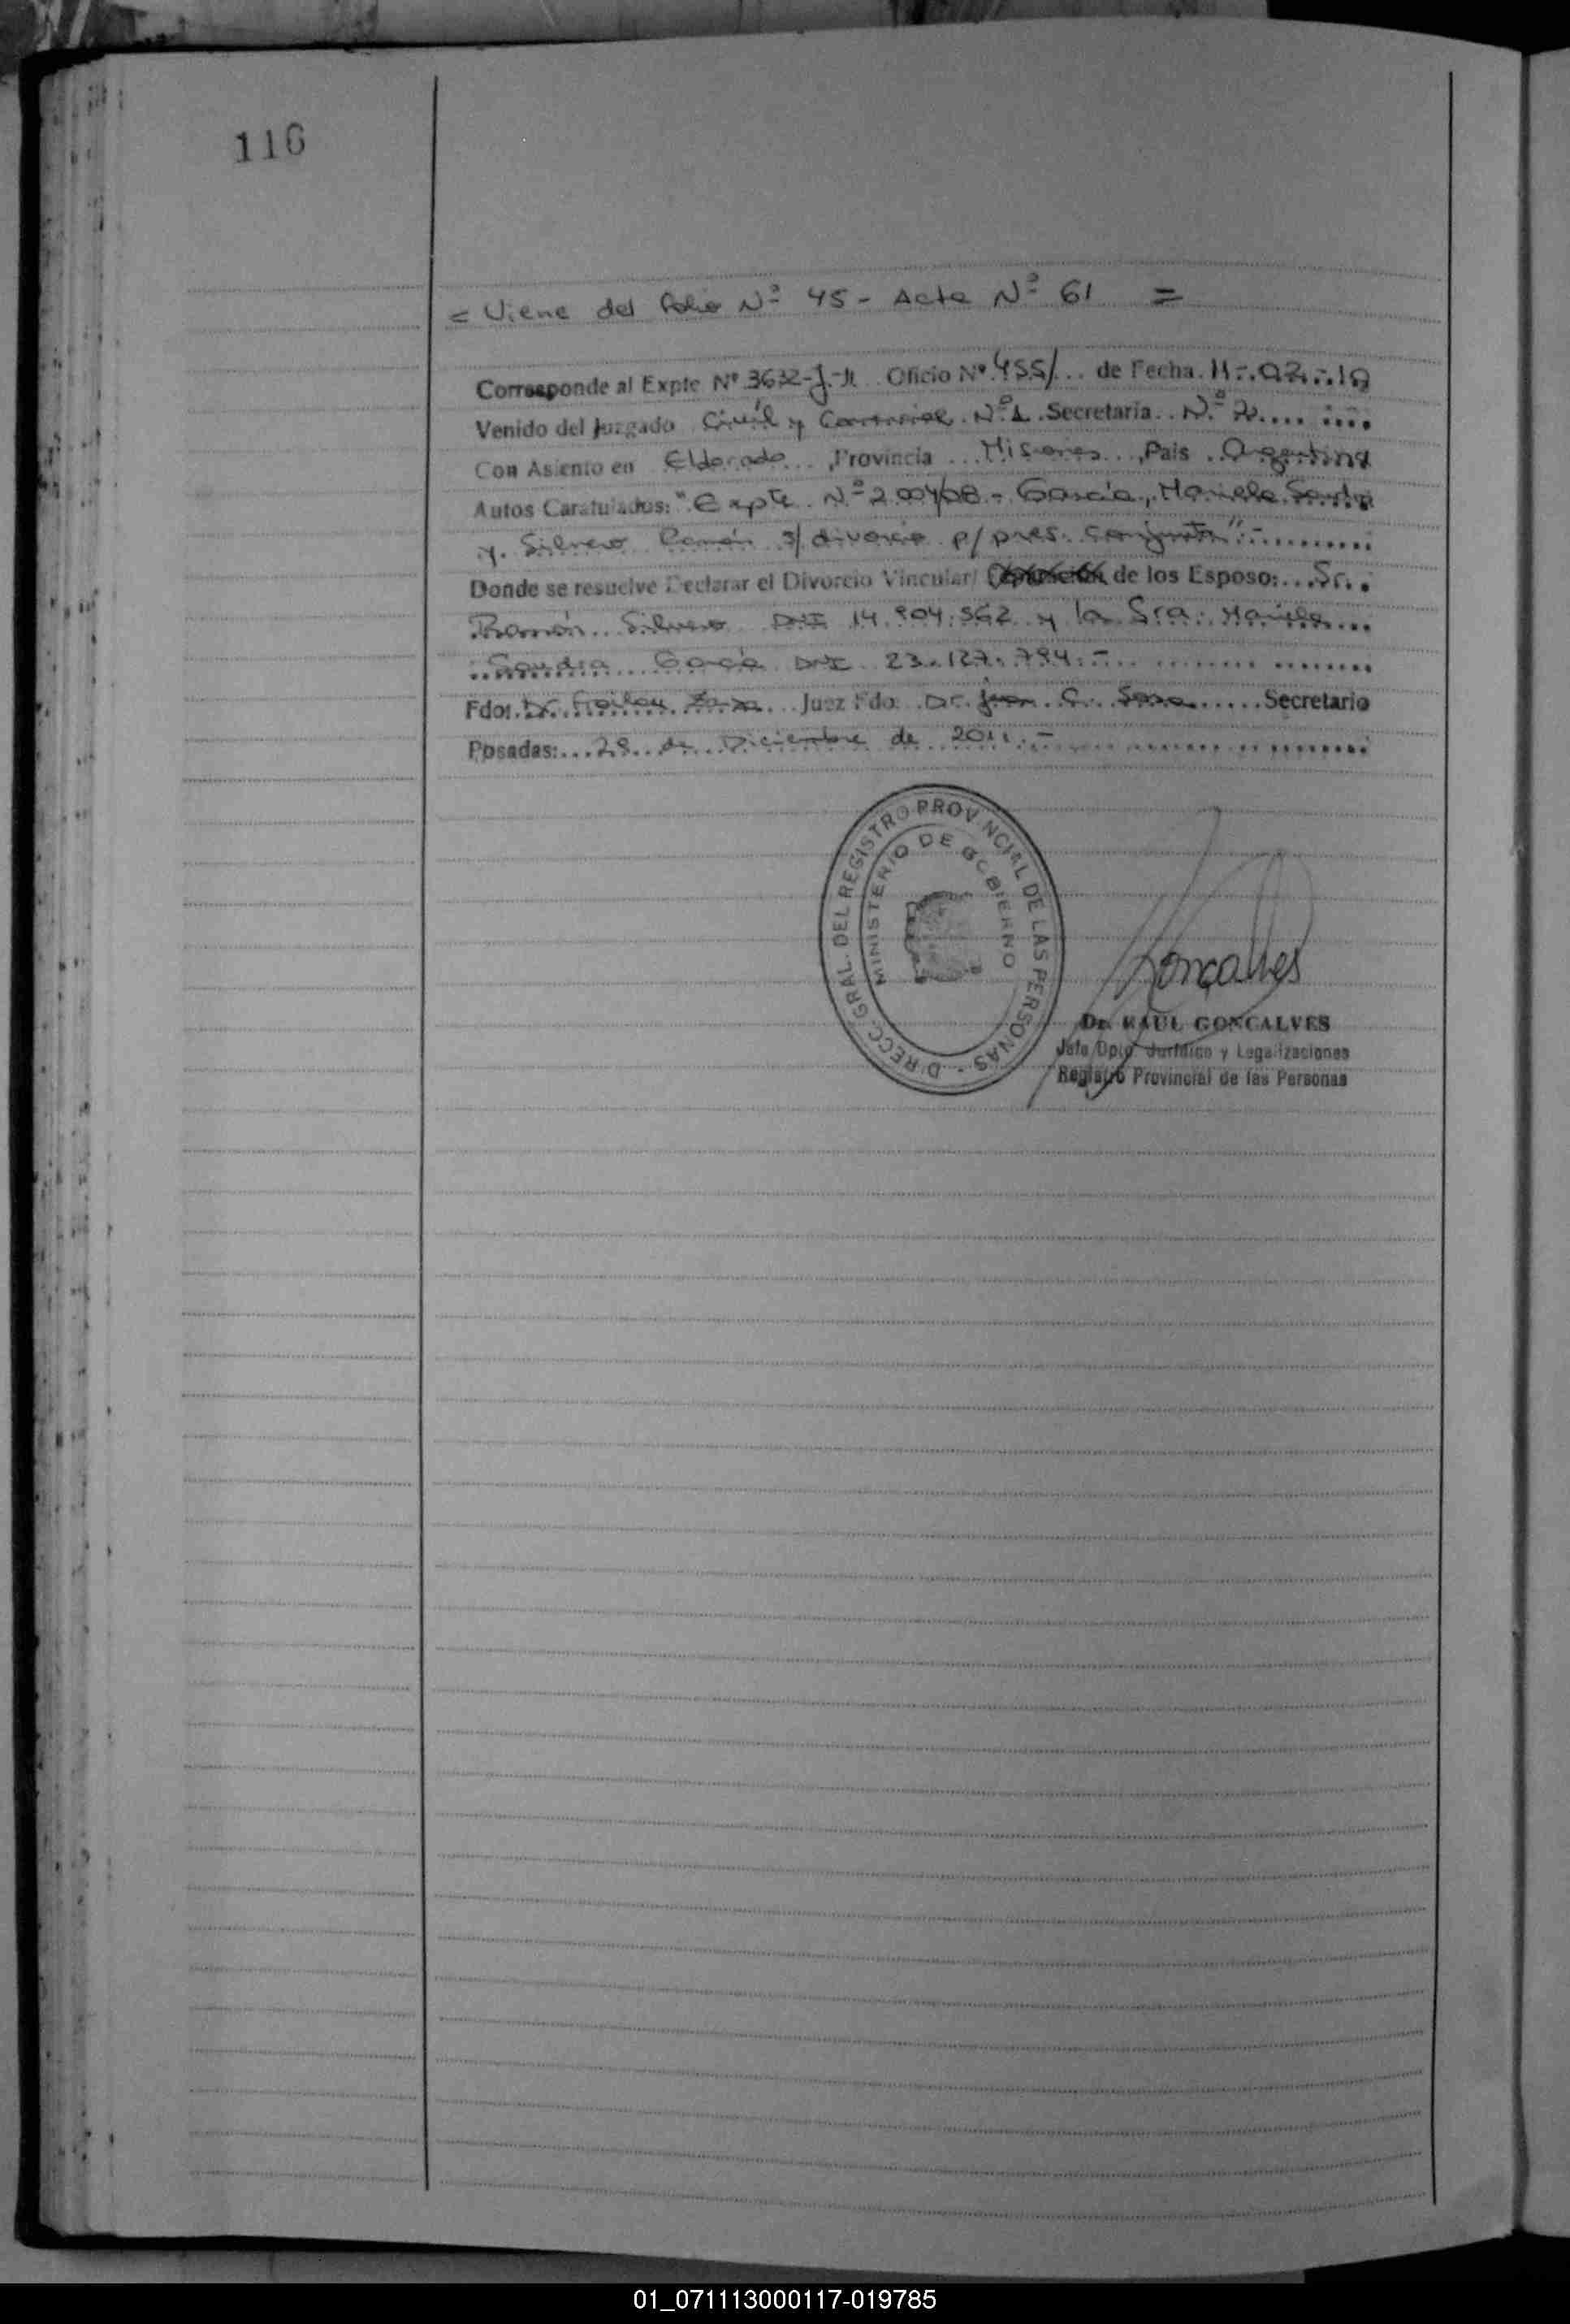 116
= Viene del folio Nº 45 - Acta Nº 61 =
Corresponde al Expte Nº 3632-J-11 Oficio Nº 455/... de Fecha. 11-.02.-.10
Venido del Juzgado Civil y Comercial Nº 1 Secretaria.. Nº 2.... ....
Con Asiento en Eldorado... ,Provincia ...Misiones..., Pais . Argentina
Autos Caratulados: "Expte. Nº 200/08 - García, Mariela Sandra
y. Silvero Ramón s/ divorcio p/ pres. conjunta".-..........
Donde se resuelve Declarar el Divorcio Vincular/ de los Esposo:...Sr..
Ramón.. Silvero DNI 14.904.562 y la Sra. Mariela...
Sandra García DNI 23.127.794.-
Fdo: Dr. Juez Fdo: Dr. Juan C. Sosa......Secretario
Posadas:...28 de Diciembre de 2011.-
DIRECC. GRAL. DEL REGISTRO PROVINCIAL DE LAS PERSONAS -
MINISTERIO DE GOBIERNO
Goncalves
Dr. RAUL GONCALVES
Jefe Dpto. Jurídico y Legalizaciones
Registro Provincial de las Personas
01_071113000117-019785